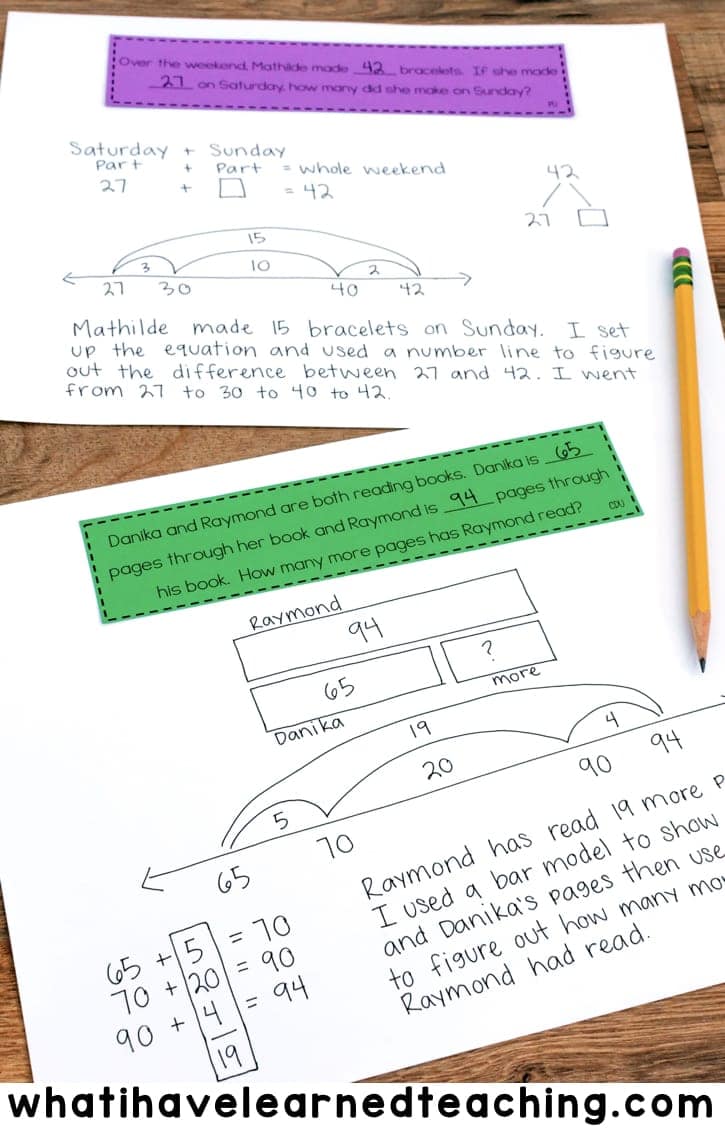 Over the weekend, Mathilde made 42 bracelets. If she made
27 on Saturday, how many did she make on Sunday?
PU
Saturday + Sunday
Part + Part = whole weekend
27 + □ = 42
42
27 □
15
3 10 2
27 30 40 42
Mathilde made 15 bracelets on Sunday. I set
up the equation and used a number line to figure
out the difference between 27 and 42. I went
from 27 to 30 to 40 to 42.
Danika and Raymond are both reading books. Danika is 65
pages through her book and Raymond is 94 pages through
his book. How many more pages has Raymond read?
CDU
Raymond
94
65 ?
Danika more
19
5 20 4
65 70 90 94
65 + 5 = 70
70 + 20 = 90
90 + 4 = 94
19
Raymond has read 19 more p
I used a bar model to show
and Danika's pages then use
to figure out how many mo
Raymond had read.
whatihavelearnedteaching.com